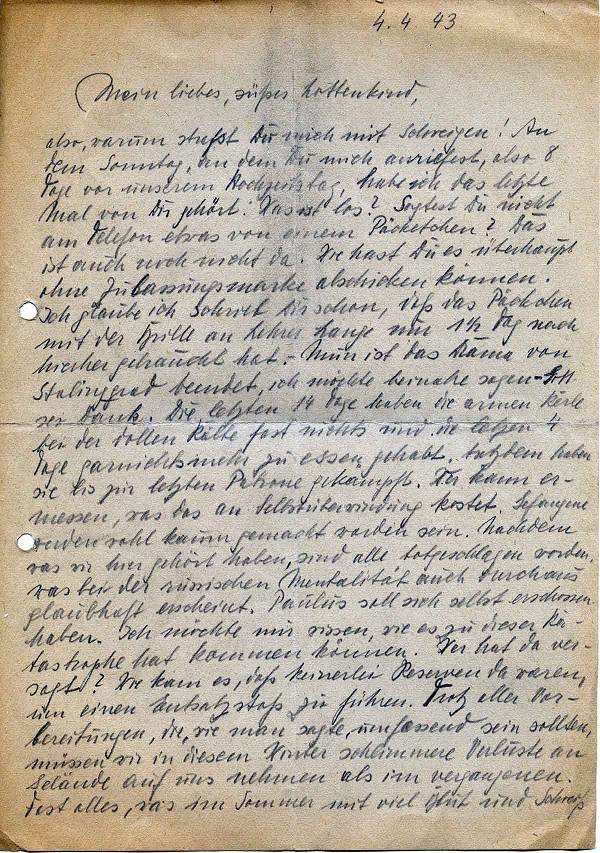 4. 4 43
Mein liebes, süßes Lottenkind,
also, warum stupst Du mich mit Schweigen! An
dem Sonntag, an dem Du mich anriefest, also 8
Tage vor unserem Hochzeitstag, habe ich das letzte
Mal von Dir gehört. Was ist los? Sagtest Du nicht
am Telefon etwas von einem Päcketchen? Das
ist auch noch nicht da. Wie hast Du es überhaupt
ohne Zulassungsmarke abschicken können.
Ich glaube ich schrieb Dir schon, daß das Päckchen
mit der Brille an nur 1½ Tag nach
hierher gebraucht hat. – Nun ist das Drama von
Stalingrad beendet, ich möchte beinahe sagen – Gott
sei Dank. Die letzten 14 Tage haben die armen Kerle
bei der dollen Kälte fast nichts und die letzen 4
Tage garnichts mehr zu essen gehabt. trotzdem haben
sie bis zur letzten Patrone gekämpft. Wer kann er-
messen, was das an Selbstüberwindung kostet. Gefangene
werden wohl kaum gemacht worden sein. Nachdem
was wir hier gehört haben, sind alle totgeschlagen worden,
was bei der russischen Mentalität auch durchaus
glaubhaft erscheint. Paulus soll sich selbst erschossen
haben. Ich möchte nur wissen, wie es zu dieser Ka-
tastrophe hat kommen können. Wer hat da ver-
sagt? Wie kam es, daß keinerlei Reserven da waren,
um einen Entsatzstoß zu führen. Trotz aller Vor-
bereitungen, die, wie man sagte, umfassend sein sollten,
müssen wir in diesem Winter schlimmere Verluste an
Gelände auf uns nehmen als im vergangenen.
Fast alles, was im Sommer mit viel Blut und Schweiß